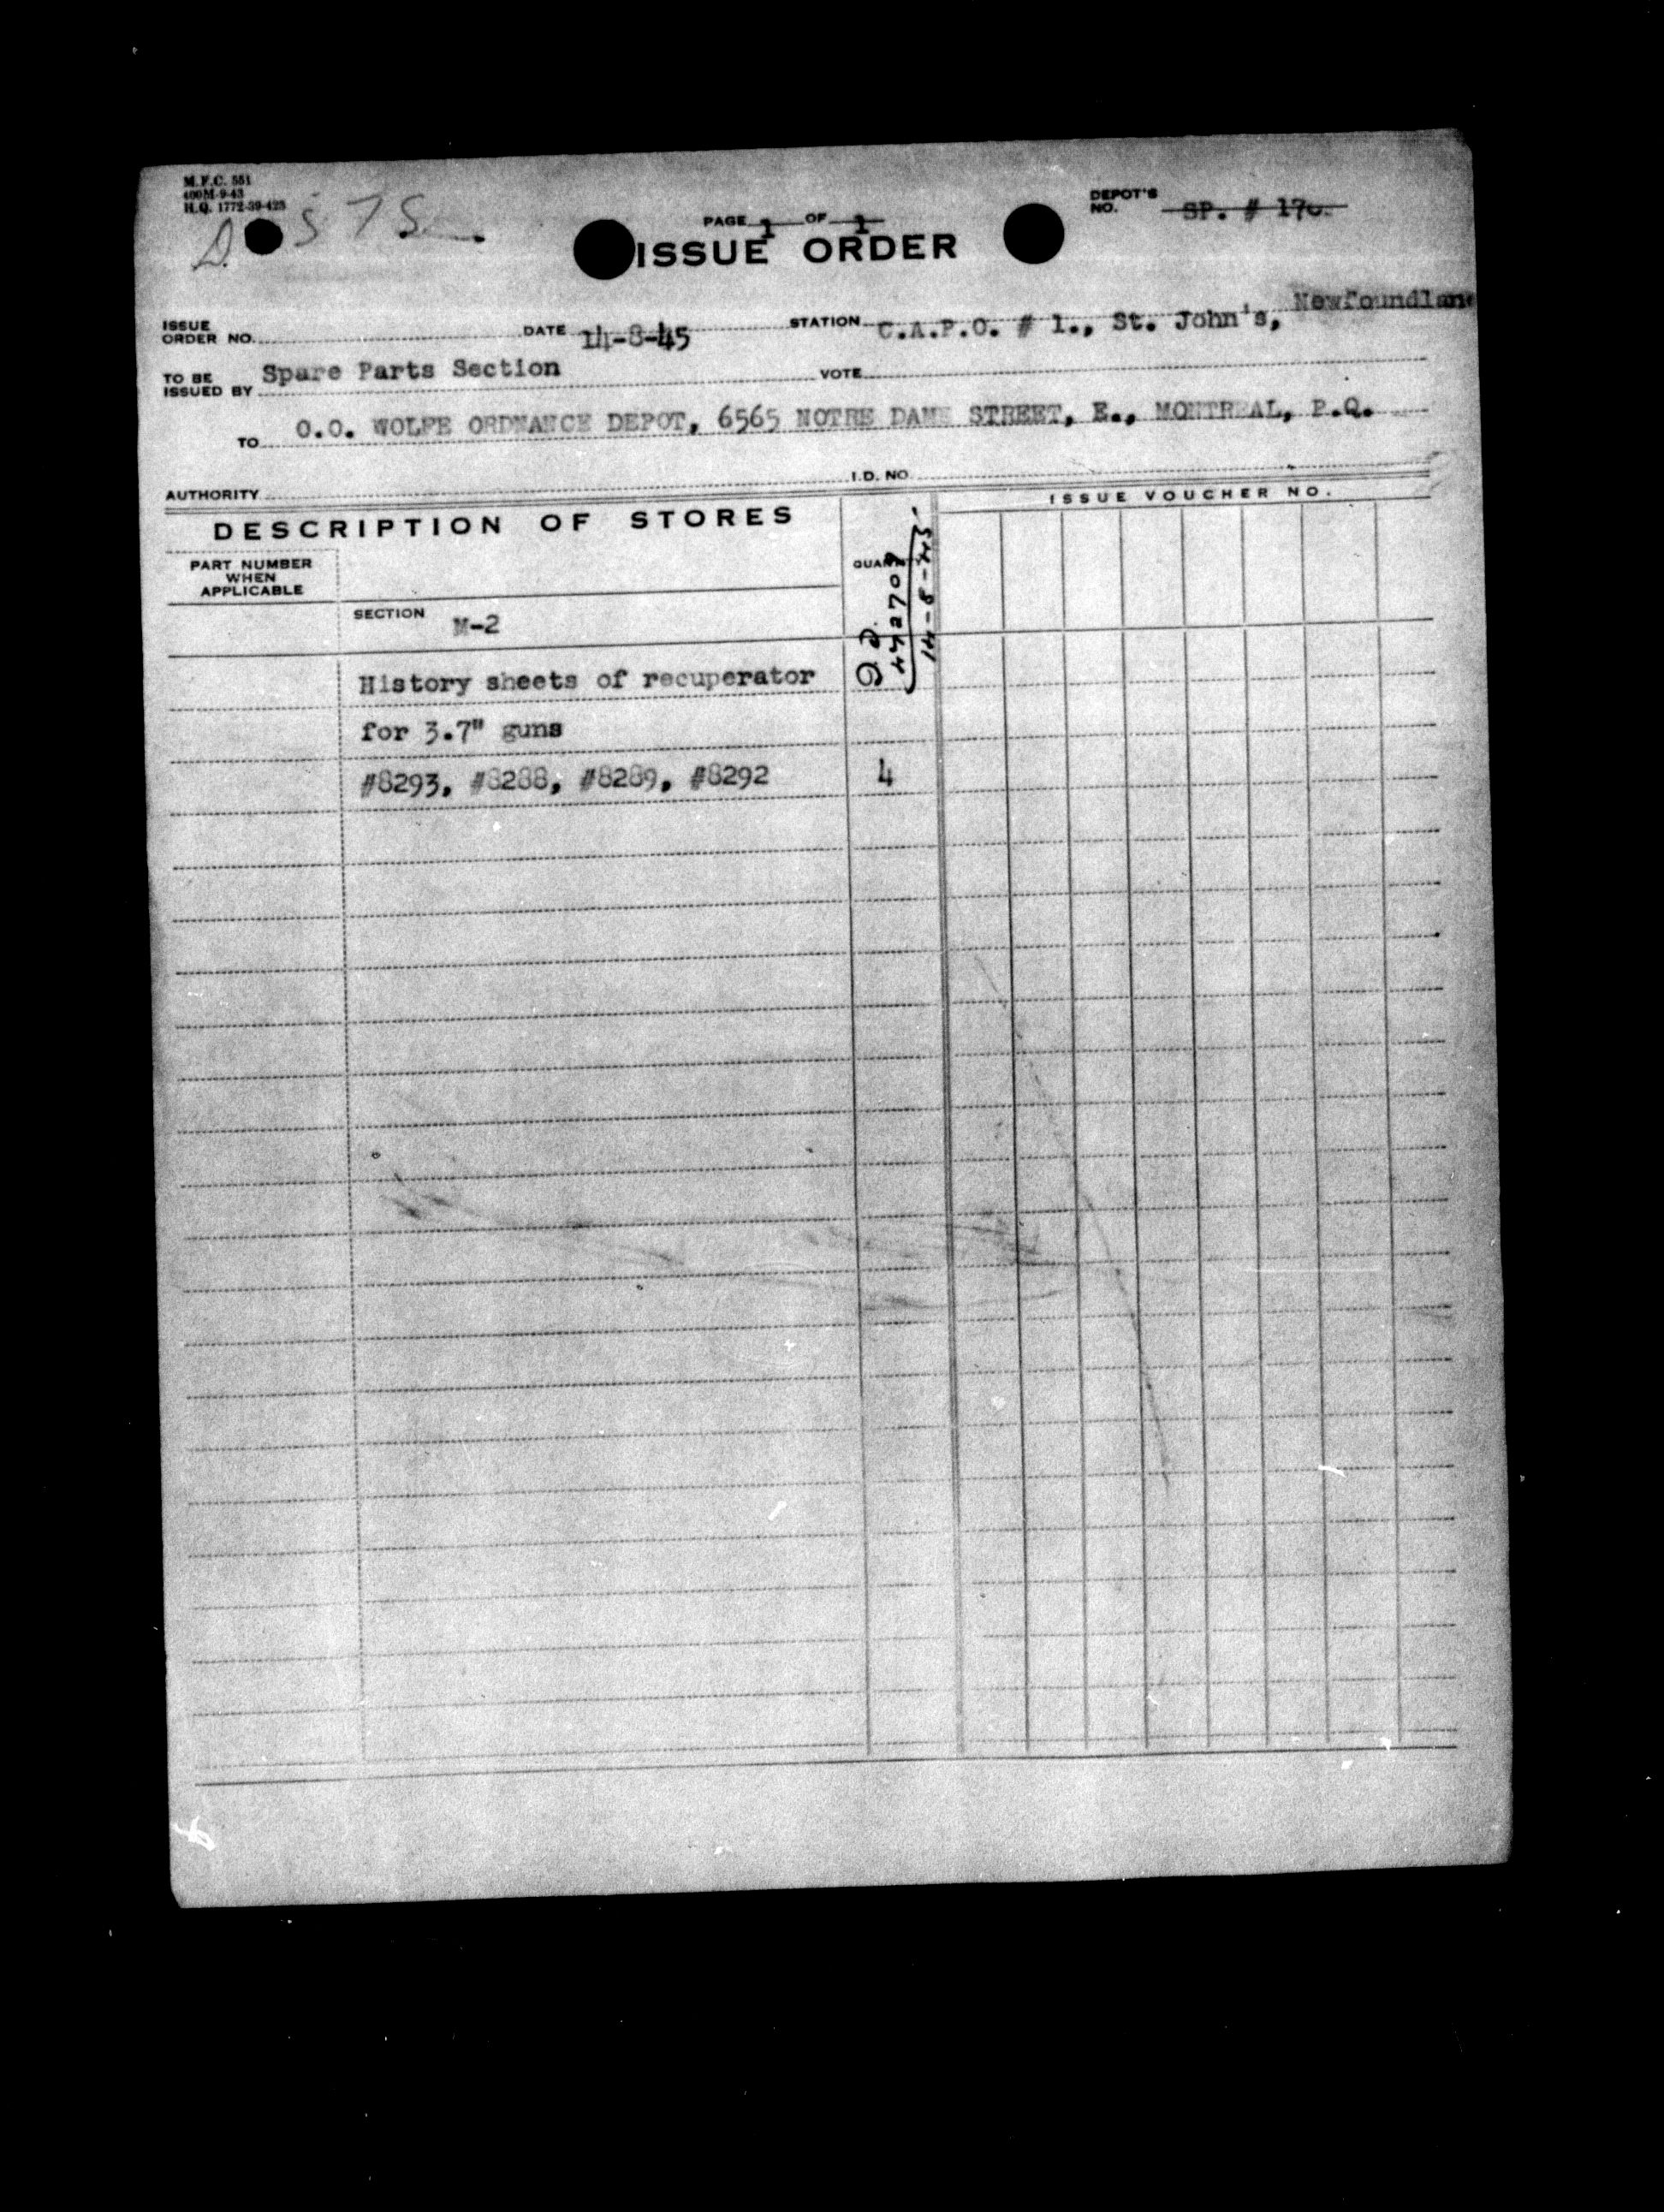 M.F.C. 551
400M-9-43
H.Q. 1772-39-423
PAGE 1 OF 1
DEPOT'S NO. SP. # 170
ISSUE ORDER
ISSUE ORDER NO. DATE 14-8-45 STATION C.A.P.O. # 1., St. John's, Newfoundland
TO BE ISSUED BY Spare Parts Section VOTE
TO O.O. WOLFE ORDNANCE DEPOT, 6565 NOTRE DAME STREET, E., MONTREAL, P.Q.
AUTHORITY I.D. NO.
DESCRIPTION OF STORES
ISSUE VOUCHER NO.
PART NUMBER WHEN APPLICABLE
QUANTITY
SECTION M-2
14-8-45
History sheets of recuperator
for 3.7" guns
#8293, #8288, #8289, #8292 4